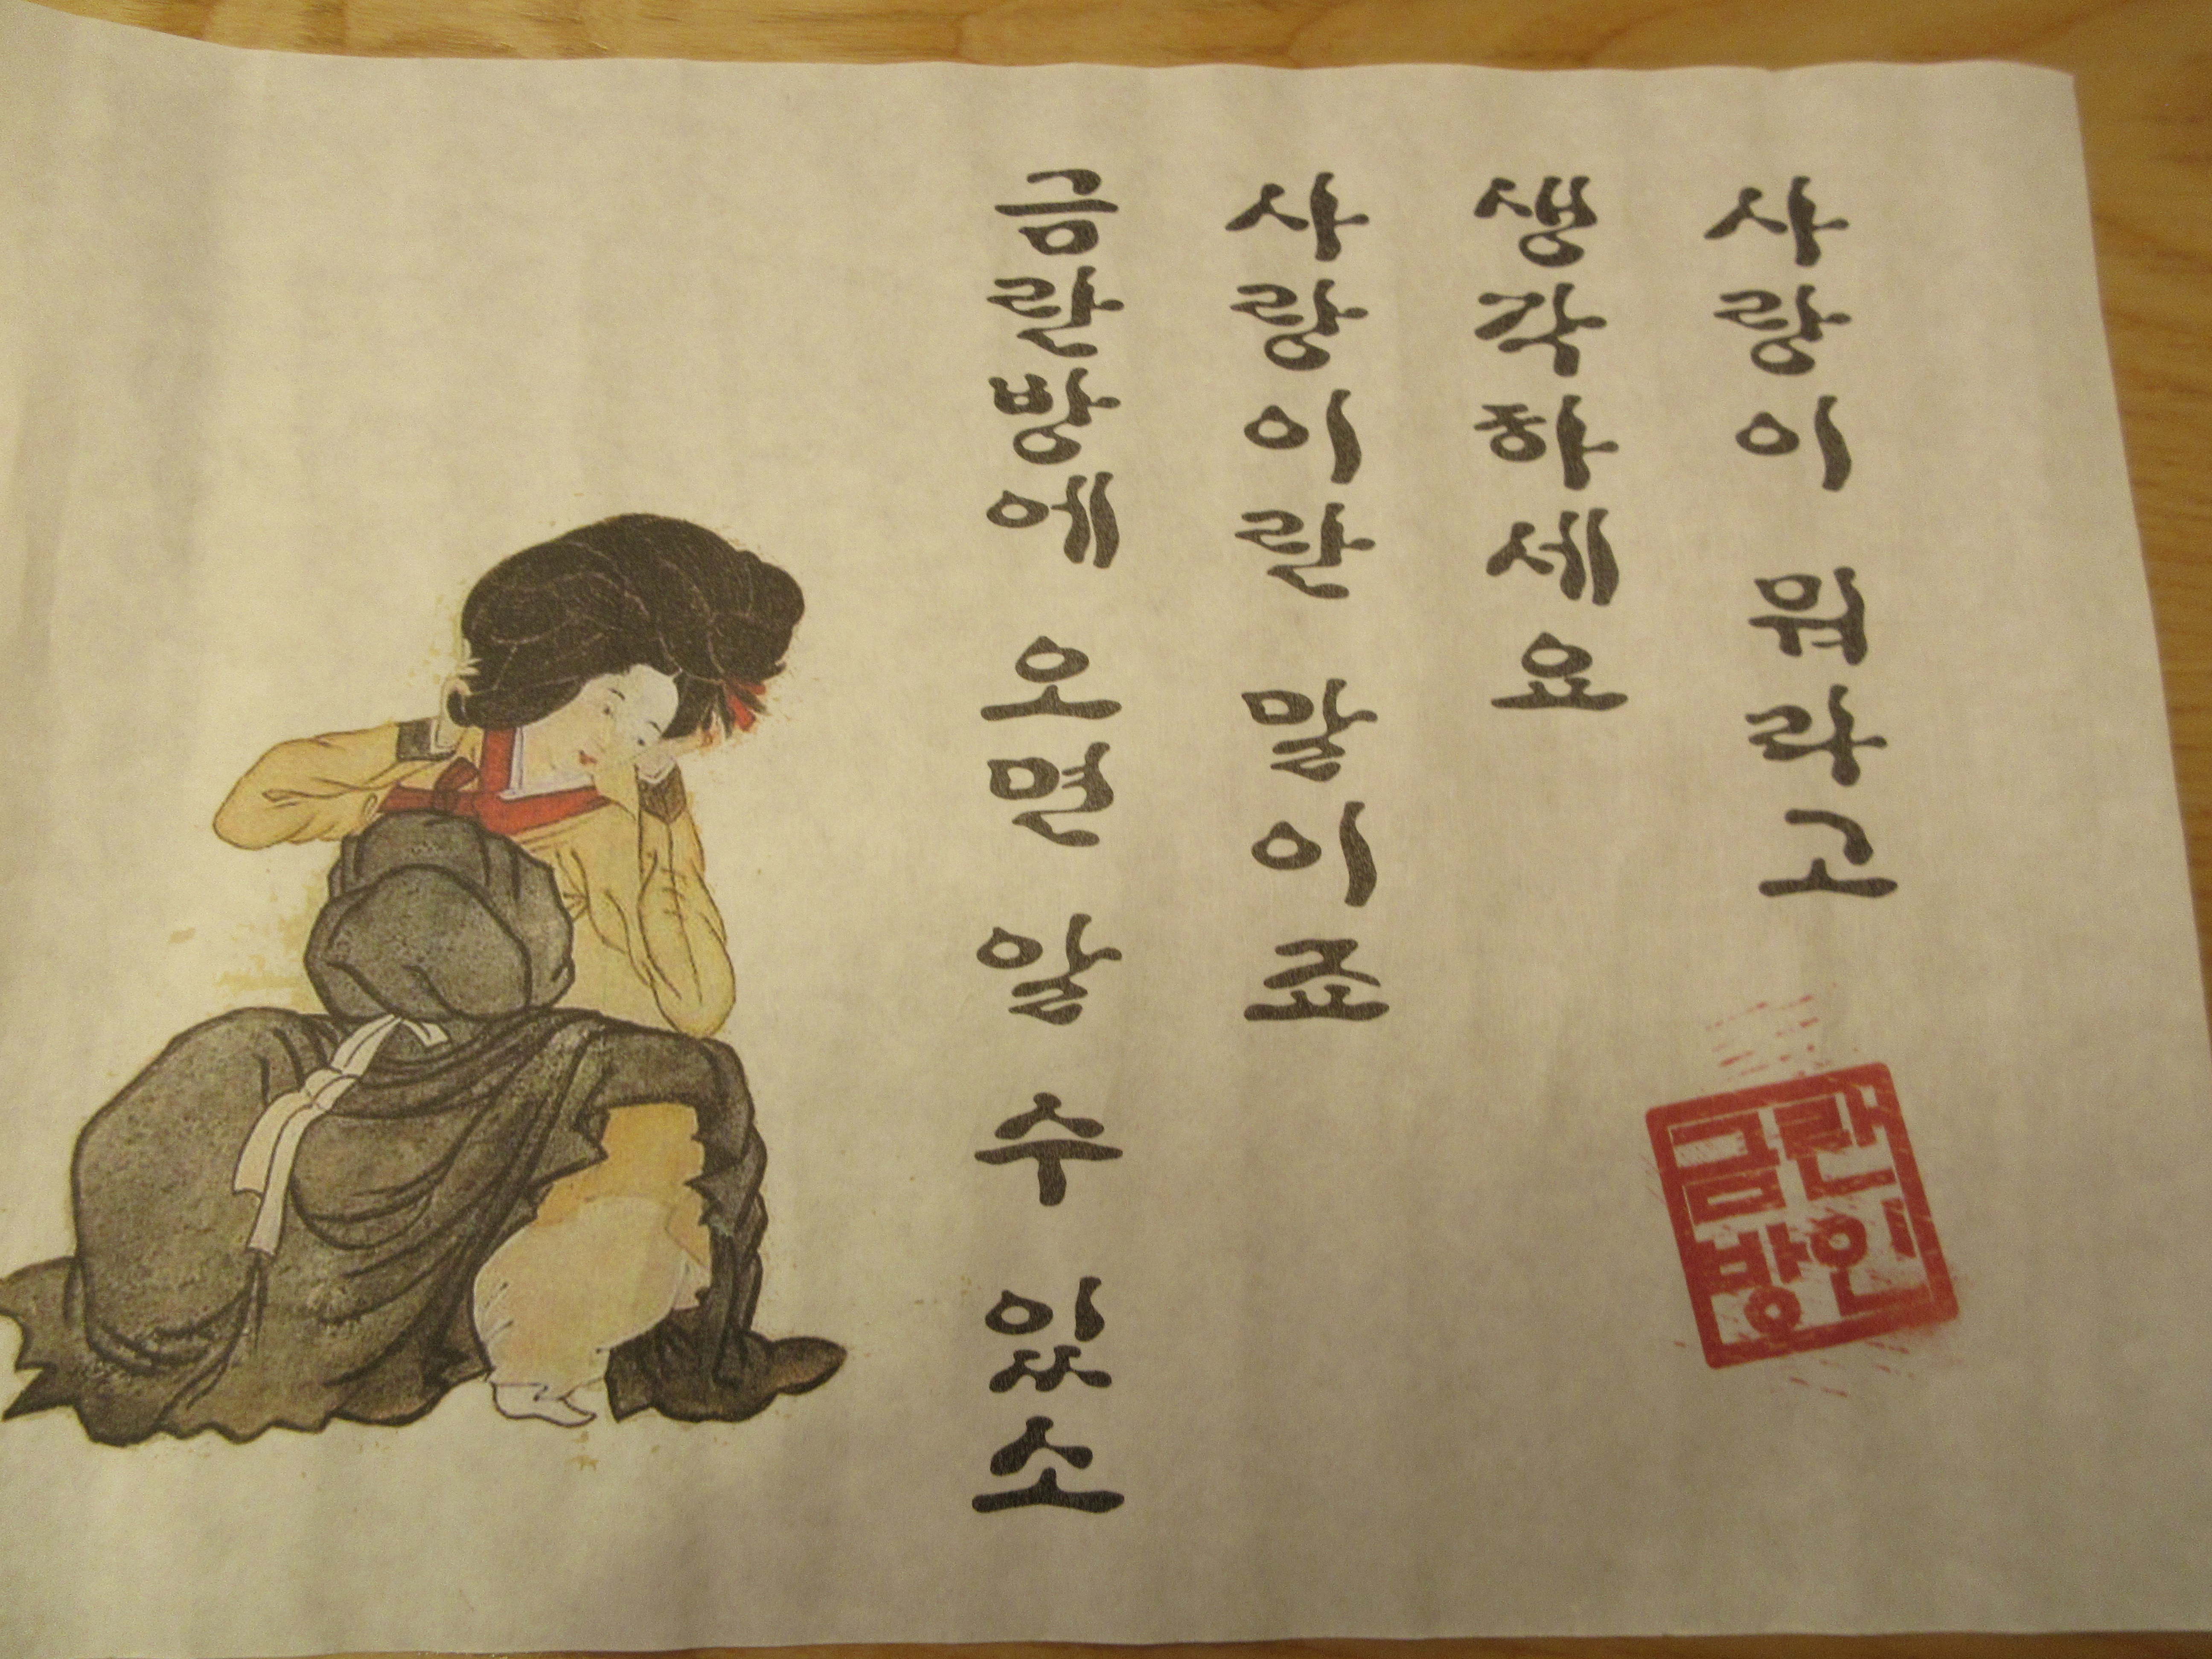 사랑이 뭐라고
생각하세요
사랑이란 말이죠
금란방에 오면 알 수 있소
금란
방인